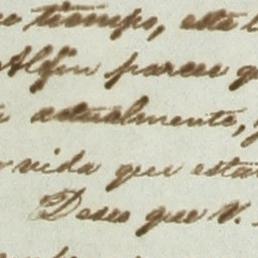 tiempo, esta
Alfin parece
actualmente,
vida que esta
Deseo que V.